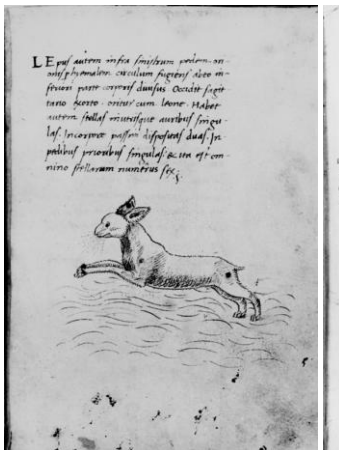 LEpus autem infra sinistrum pedem ori-
onis phyemalem circulum fugiens abeo in-
feriori parte corporis divisus Occidit sagit
tario exorto. oritur cum leone. Habet
autem stellas in utrisque auribus singu-
las. In corpore passim dispositas duas. In
pedibus prioribus singulas: & ita est om-
nino stellarum numerus sex;